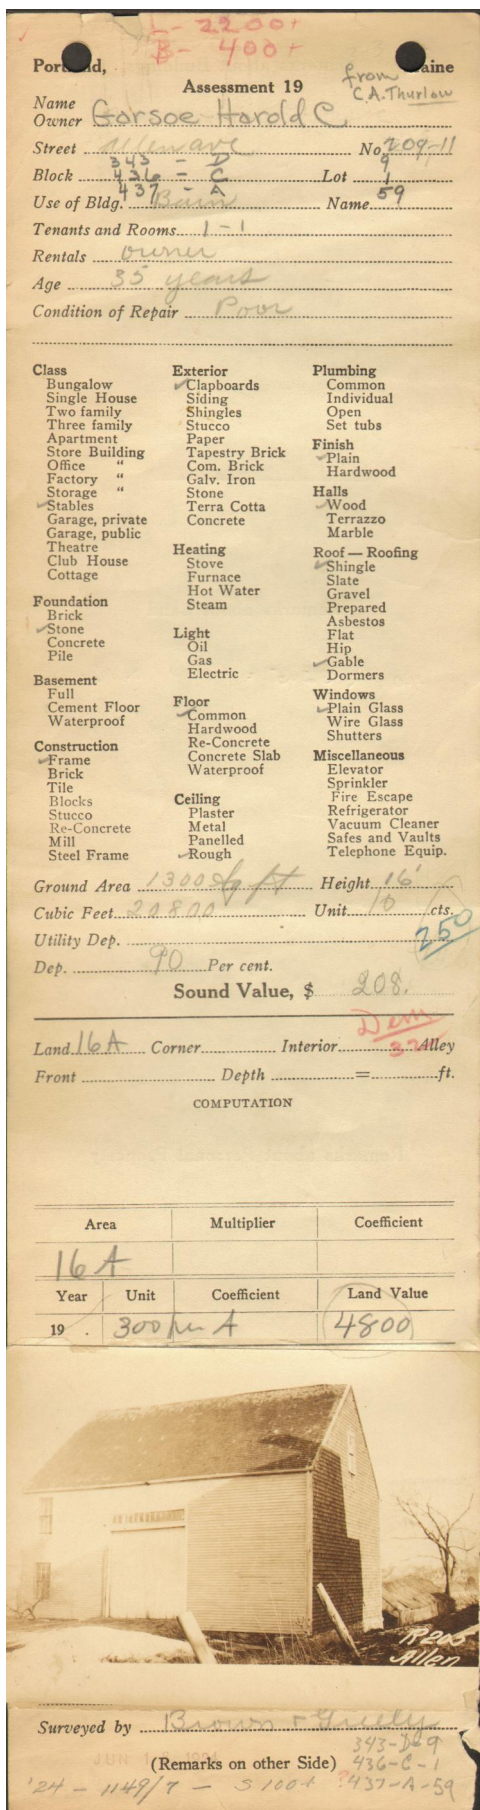 L- 2200+
B- 400+
Portland, Maine
Assessment 19
from
C.A. Thurlow
Name
Owner Gorsoe Harold C
Street Allen ave No. 209-11
343 - D 9
Block 436 - C Lot 1
437 - A 59
Use of Bldg. Barn Name
Tenants and Rooms 1-1
Rentals owner
Age 35 years
Condition of Repair Poor
Class
Bungalow
Single House
Two family
Three family
Apartment
Store Building
Office "
Factory "
Storage "
✓Stables
Garage, private
Garage, public
Theatre
Club House
Cottage
Foundation
Brick
✓Stone
Concrete
Pile
Basement
Full
Cement Floor
Waterproof
Construction
✓Frame
Brick
Tile
Blocks
Stucco
Re-Concrete
Mill
Steel Frame
Exterior
✓Clapboards
Siding
Shingles
Stucco
Paper
Tapestry Brick
Com. Brick
Galv. Iron
Stone
Terra Cotta
Concrete
Heating
Stove
Furnace
Hot Water
Steam
Light
Oil
Gas
Electric
Floor
✓Common
Hardwood
Re-Concrete
Concrete Slab
Waterproof
Ceiling
Plaster
Metal
Panelled
✓Rough
Plumbing
Common
Individual
Open
Set tubs
Finish
✓Plain
Hardwood
Halls
✓Wood
Terrazzo
Marble
Roof — Roofing
✓Shingle
Slate
Gravel
Prepared
Asbestos
Flat
Hip
✓Gable
Dormers
Windows
✓Plain Glass
Wire Glass
Shutters
Miscellaneous
Elevator
Sprinkler
Fire Escape
Refrigerator
Vacuum Cleaner
Safes and Vaults
Telephone Equip.
Ground Area 1300 sq ft Height 16'
Cubic Feet 20800 Unit 10 cts.
Utility Dep. 250
Dep. 90 Per cent.
Sound Value, $ 208.
Dem
Land 16 A Corner Interior Alley
Front Depth = ft.
COMPUTATION
Area Multiplier Coefficient
16 A
Year Unit Coefficient Land Value
19 . 300 per A 4800
Rear
Allen
Surveyed by Brown & Greely
(Remarks on other Side)
343-D-9
436-C-1
?437-A-59
'24 - 1149/7 - $100+